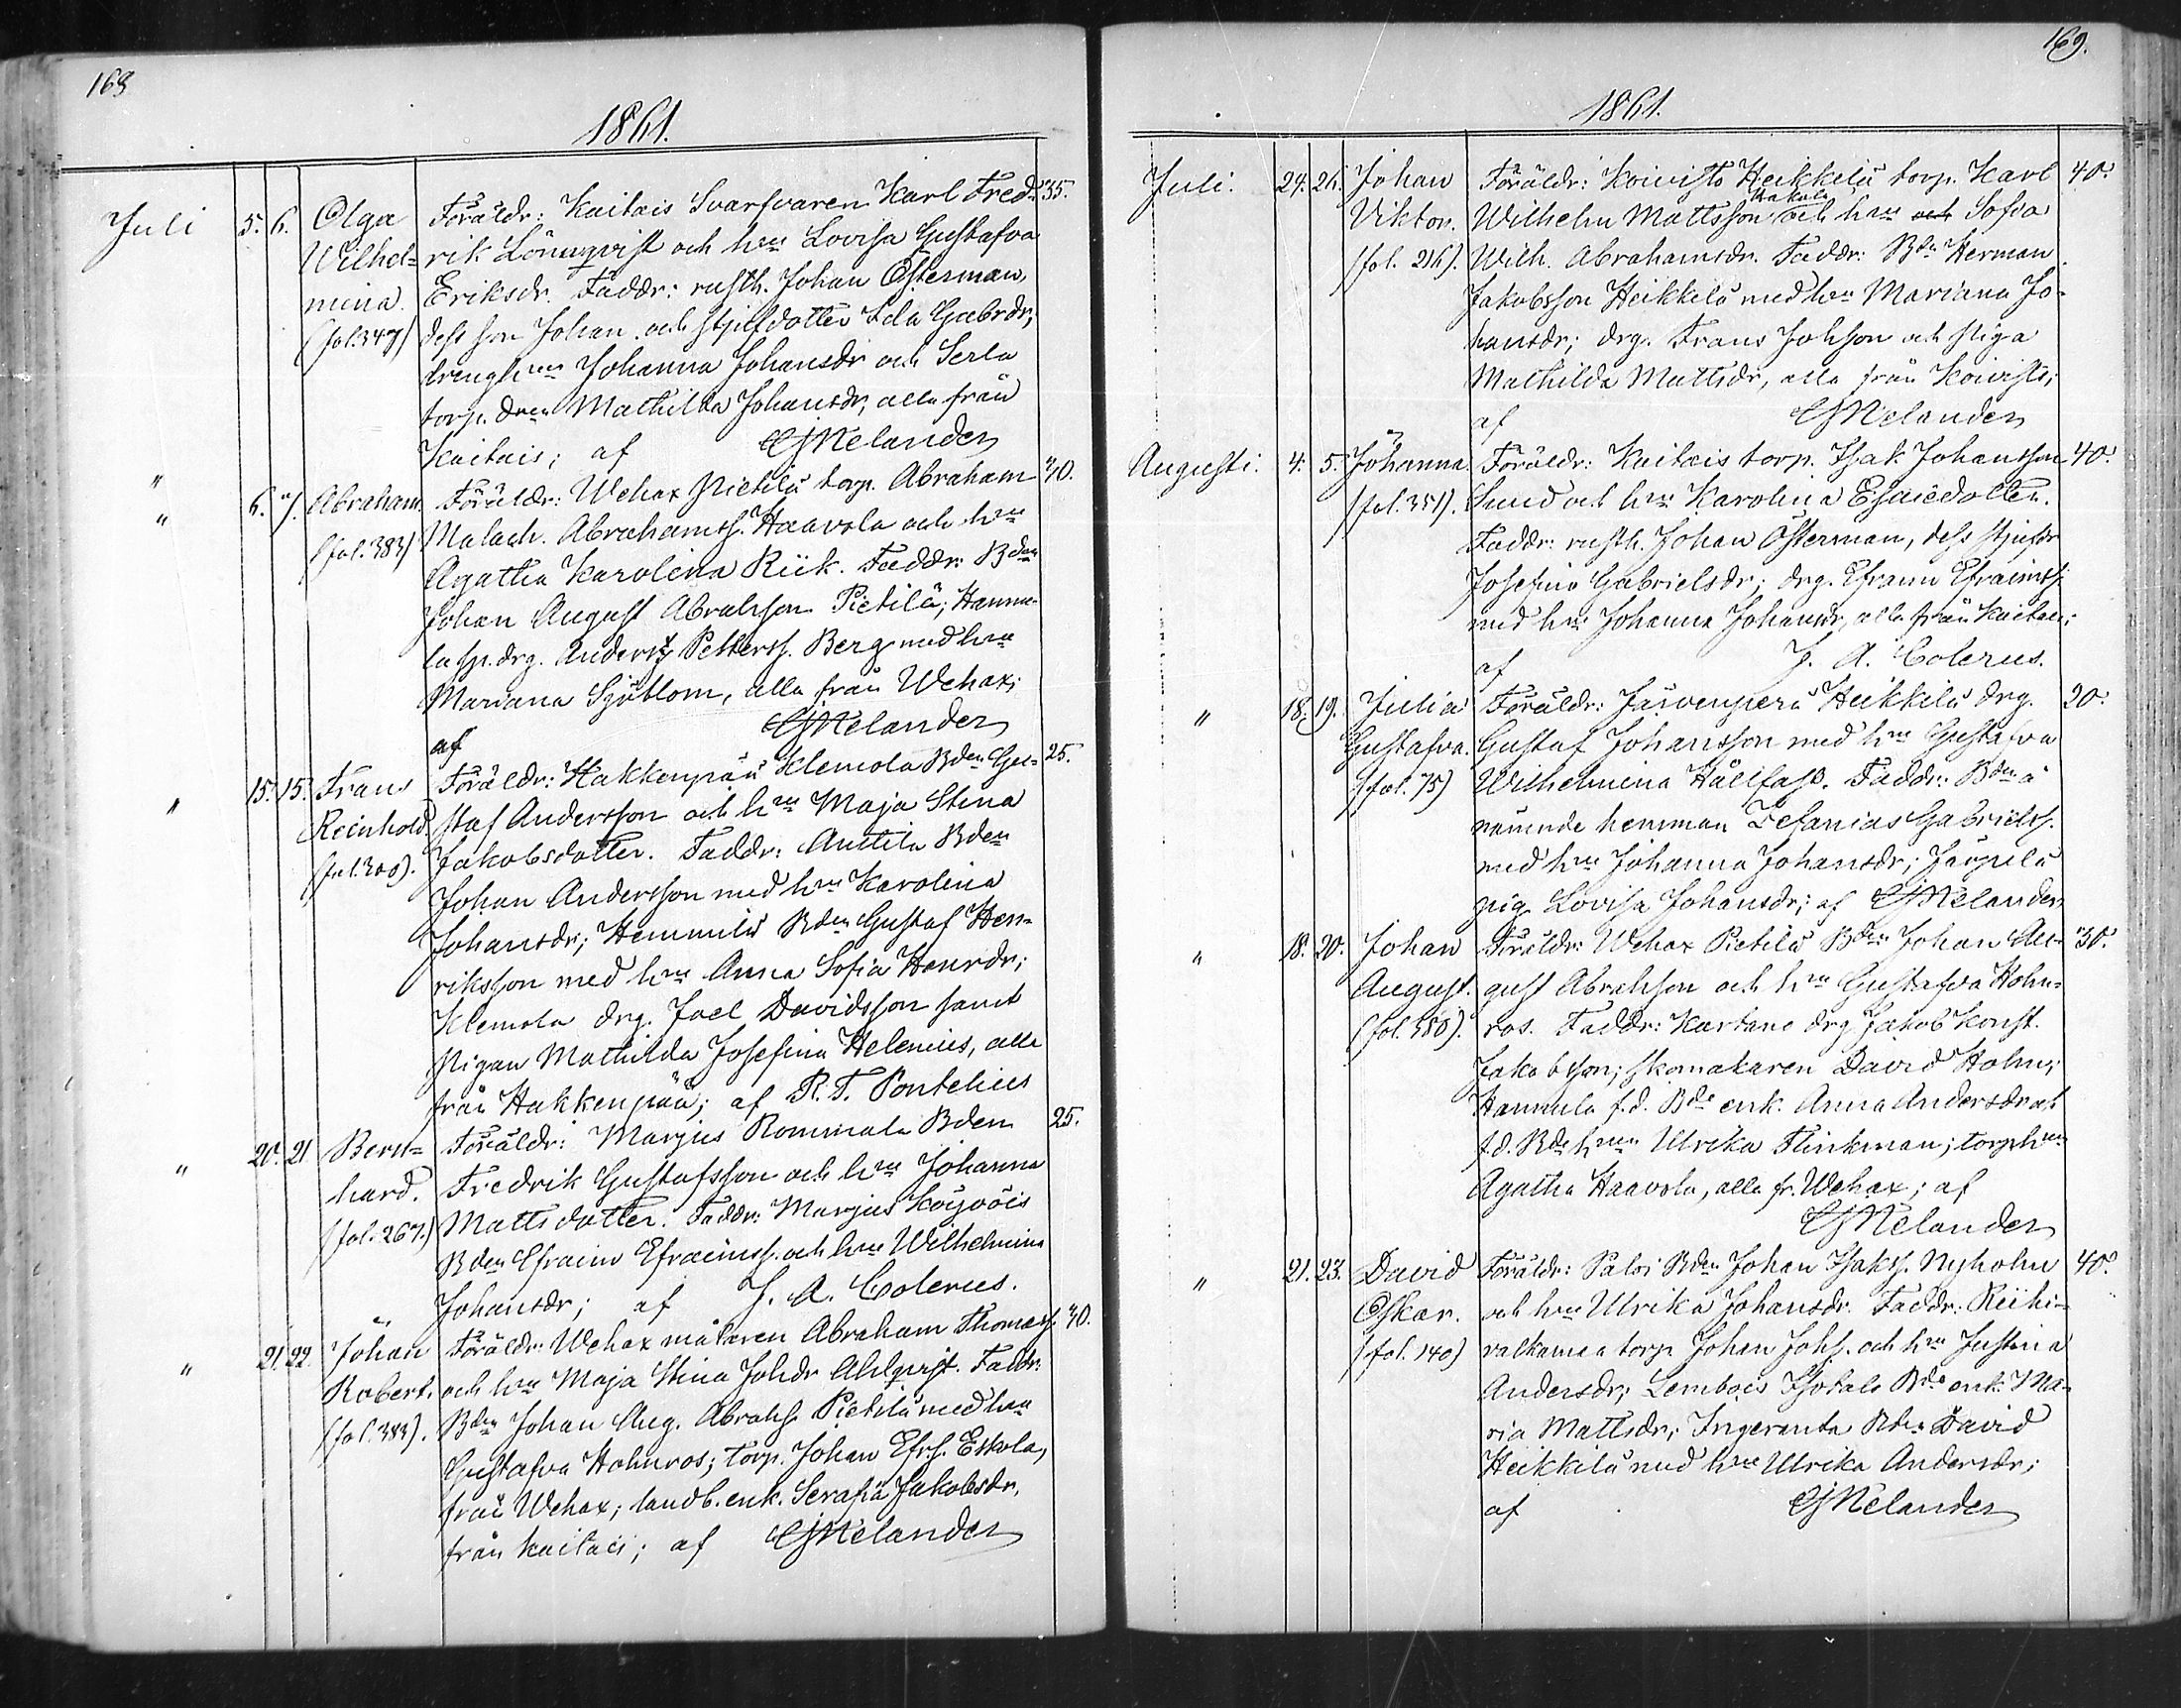 168
1861.
Juli 5. 6. Olga Föräldr: Kaitais Svarfvaren Karl Fred= 35.
Wilhel= rik Lönnqvist och h:ru Lovisa Gustafva
mina. Eriksdr. Faddr: rusth. Johan Österman,
(fol. 347) dess son Johan och stjufdotter Ida Gabrdr;
drengh:ru Johanna Johansdr och Serla
torp. dren Mathilda Johansdr, alla från
Kaitais; af CJMelander
" 6. 7. Abraham. Föräldr: Wehax Pietilä torp. Abraham 40.
(fol. 383) Malach. Abrahamss. Haavola och h:ru
Agatha Karolina Rick. Faddr: Bden
Johan August Abrahsson Pietilä; Hannu-
la sp. drg. Anders Petterss. Berg med h:ru
Mariana Sjöblom, alla från Wehax;
af CJMelander
" 15. 15. Frans Föräldr: Hakkenpää Klemola Bden Gu= 25.
Reinhold staf Andersson och h:ru Maja Stina
(fol. 200). Jakobsdotter. Faddr: Anttila Bden
Johan Andersson med h:ru Karolina
Johansdr; Hemmilä Bden Gustaf Hen=
riksson med h:ru Anna Sofia Henrdr;
Klemola drg. Joel Davidsson samt
Pigan Mathilda Josefina Helenius, alla
från Hakkenpää; af R. T. Pontelius
" 20. 21 Bern= Föräldr: Marjus Rommala Bden 25.
hard. Fredrik Gustafsson och h:ru Johanna
(fol. 267.) Mattsdotter. Faddr: Marjus Köyvöis
Bden Efraim Efraimss. och h:ru Wilhelmina
Johansdr; af J. A. Colerus.
" 21. 22. Johan Föräldr: Wehax målaren Abraham Thomass. 40.
Robert. och h:ru Maja Stina Johdr Ahlqvist. Faddr:
(fol. 383). Bden Johan Aug. Abrahss. Pietilä med h:ru
Gustafva Holmros; torp. Johan Efr.s. Eskola,
från Wehax; landb. enk. Serafia Jakobsdr,
från Kaitais; af CJMelander
169.
1861.
Juli. 24. 26. Johan Föräldr: Koivisto Heikkilä torp. Karl 40.
Viktor. Wilhelm Mattsson och h:ru och Sofia
(fol. 216). Wilh. Abrahamsdr. Faddr: Bdn Herman
Jakobsson Heikkilä med h:ru Mariana Jo-
hansdr; drg. Frans Johsson och piga
Mathilda Mattsdr, alla från Koivisto;
af CJMelander
Augusti. 4. 5. Johanna. Föräldr: Kaitais torp. Isak Johansson 40.
(fol. 351). Sund och h:ru Karolina Esaiedotter.
Faddr: rusth. Johan Österman, dess stjufdr
Josefina Gabrielsdr; drg. Efraim Efraimss.
med h:ru Johanna Johansdr, alla från Kaitais;
af J. A. Colerus.
" 18. 19. Julia Föräldr: Järvenperä Heikkilä drg. 20.
Gustafva. Gustaf Johansson med h:ru Gustafva
(fol. 75) Wilhelmina Hållfast. Faddr: Bden å
nämnde hemman Zefanias Gabrielss.
med h:ru Johanna Johansdr; Jäypilä
pig. Lovisa Johansdr; af CJMelander
" 18. 20. Johan Föräldr: Wehax Pietilä Bden Johan Au- 30.
August. gust Abrahsson och h:ru Gustafva Holm=
(fol. 380). ros. Faddr: Kartano drg Jakob Konst.
Jakobsson; skomakaren David Holm;
Hannula f.d. Bde enk. Anna Andersdr och
f.d. Bde h:run Ulrika Flinkman; torp. h:run
Agatha Haavola, alla fr. Wehax; af
CJMelander
" 21. 23. David Föräldr: Paloi Bden Johan Isakss. Nyholm 40.
Oskar. och h:ru Ulrika Johansdr. Faddr: Reihi-
(fol. 140) valkamaa torp. Johan Johss. och h:ru Justina
Andersdr; Lembois Isotalo Bde enk. Ma-
ria Mattsdr; Ingeranta Bden David
Heikkilä med h:ru Ulrika Andersdr;
af CJMelander